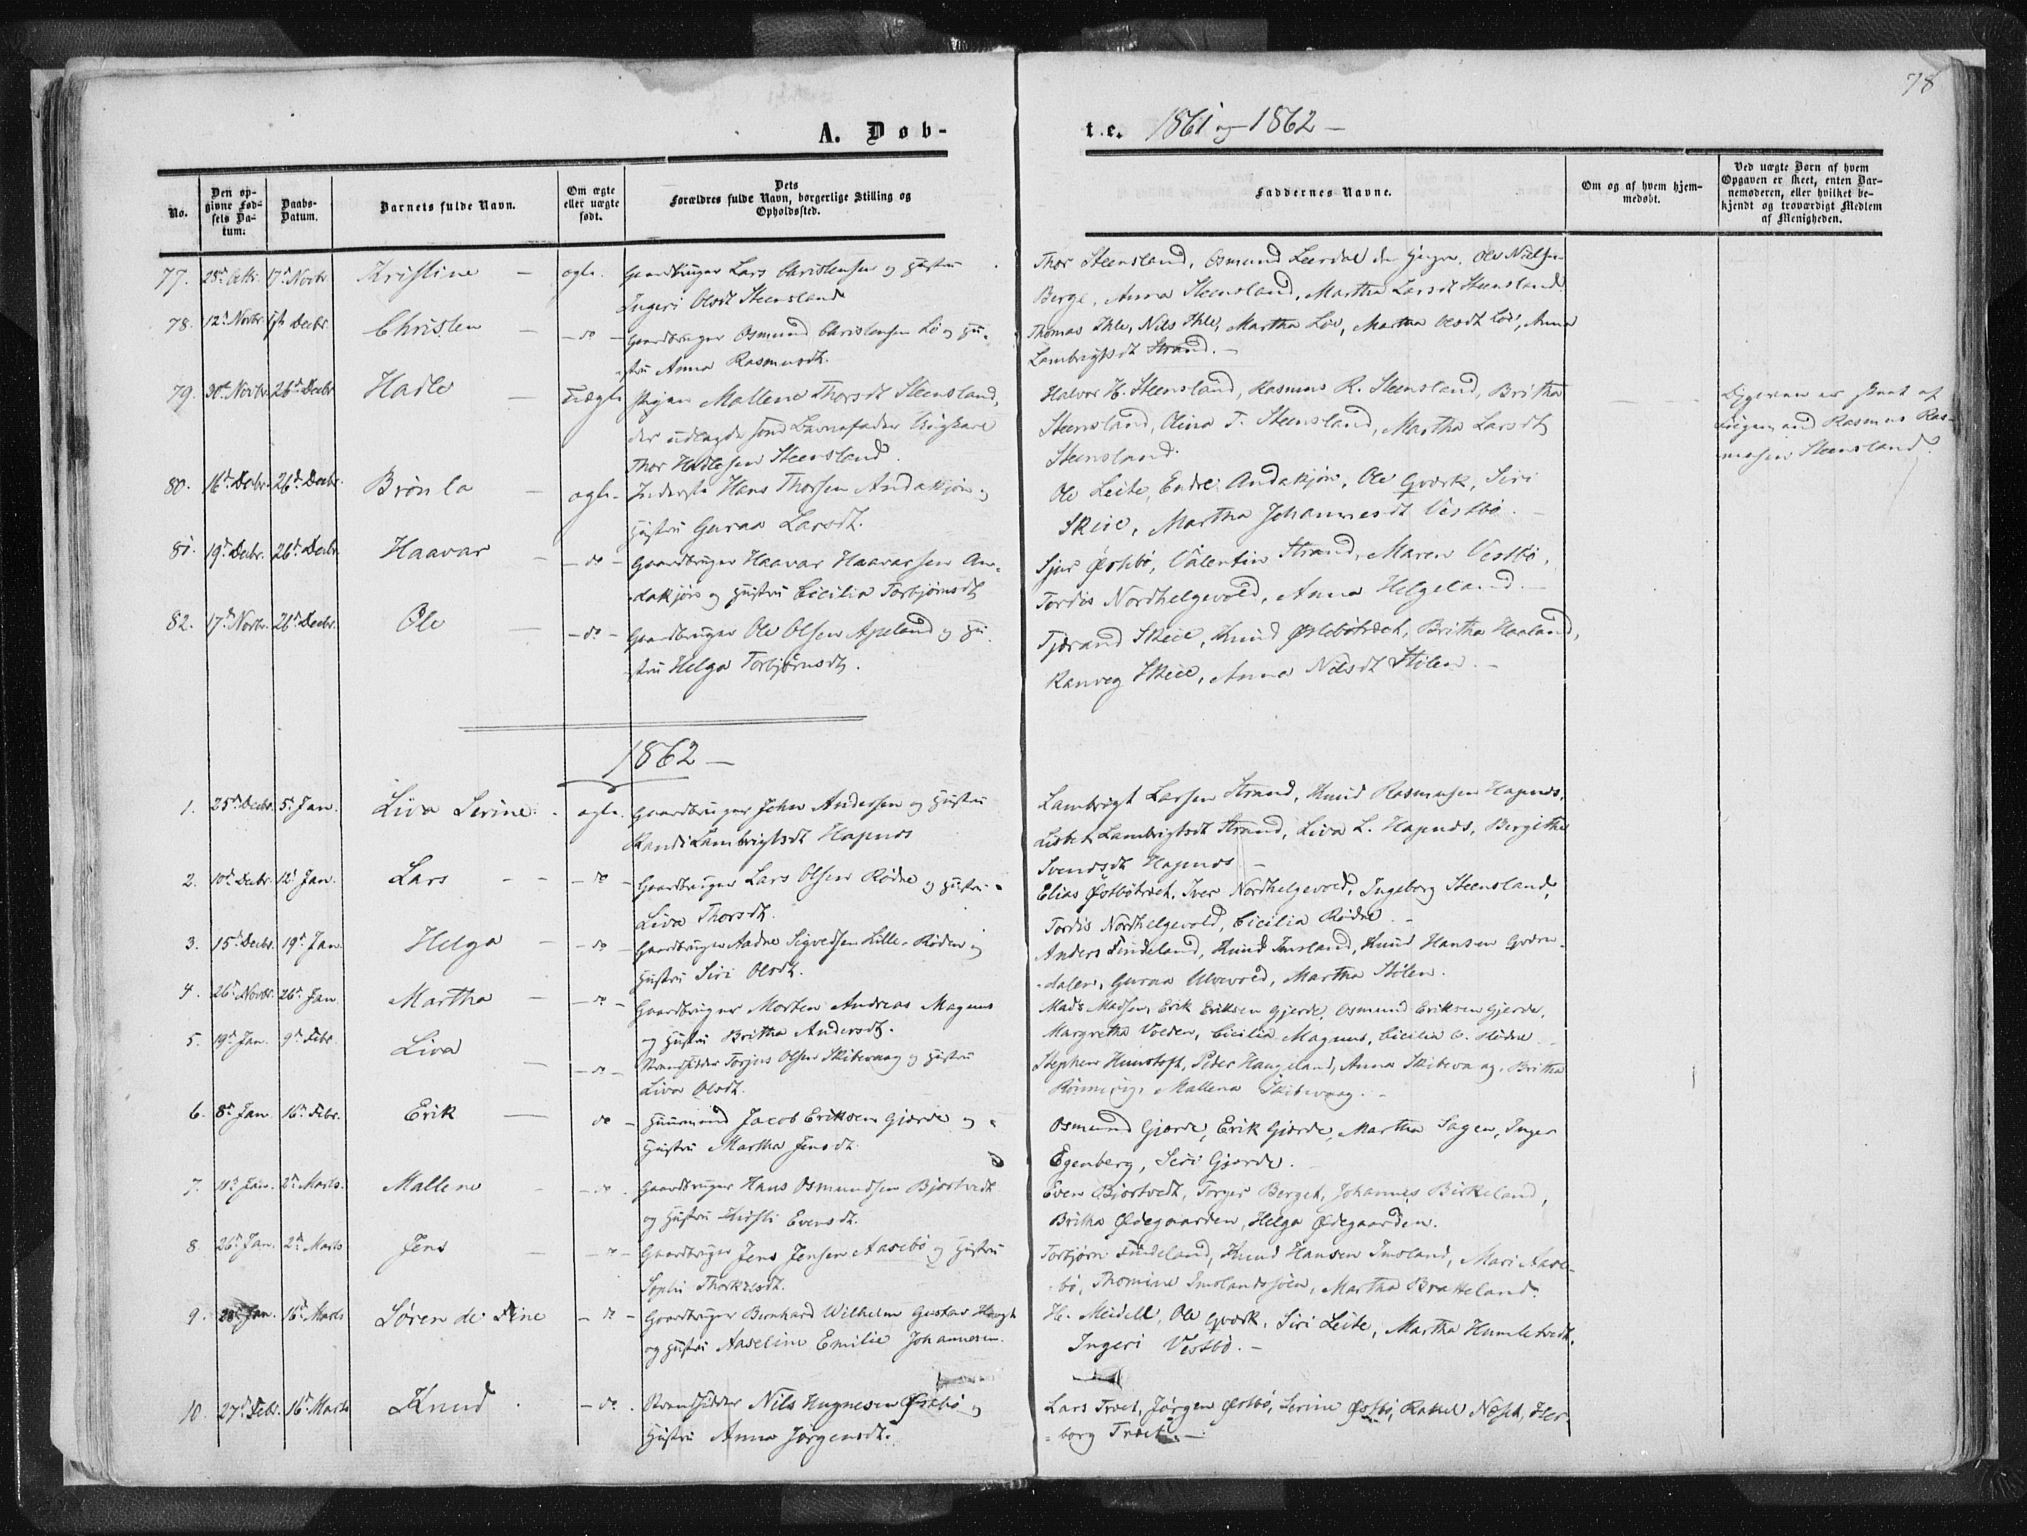 78
A. Døb-
te. 1861 og 1862 –
No.
Den opgivne Fødsels Datum.
Daabs-Datum.
Barnets fulde Navn.
Om ægte eller uægte født.
Dets Forældres fulde Navn, borgerlige Stilling og Opholdssted.
Faddernes Navne.
Om og af hvem hjemmedøbt.
Ved uægte Børn af hvem Opgaven er skeet, enten Barnemoderen, eller hvilket bekjendt og troværdigt Medlem af Menigheden.
77. 28d Octbr. 17d Novbr. Kristine – ægte. Gaardbruger Lars Christensen og Hustru
Ingeri Olsdt Steensland
Thor Steensland, Osmund Leerdal den yngre, Ole Nielsen
Berge, Anna Steensland, Martha Larsdt Steensland.
78. 12d Novbr. Decbr Christen – do – Gaardbruger Osmund Christensen Lø og Hu-
stru Anna Rasmusdt.
Thomas Ihle, Nils Ihle, Martha Lør, Martha Olsdt Lør, Anna
Lambrigtsdt Strand. –
79. 30d Novbr. 26d Decbr Hadle – Uægte Pigen Mallene Thorsdt Steensland,
der udlagde som Barnefader Ungkarl
Thor Hadlesen Steensland.
Halvor H. Steensland, Rasmus R. Steensland, Britha
Steensland, Olina T. Steensland, Martha Larsdt
Steensland.
Opgaven er skeet af
Rasmus Ras-
musen Steensland.
80. 16d Decbr. 26d Decbr. Brønla – ægte. Inderste Hans Thorsen Andakjøn og
Hustru Guraa Larsdt.
Ole Leite, Endre Andakjøn, Ole Qværk, Siri
Skeie, Martha Johannesdt Vestbø.
81. 19d Decbr. 26d Decbr. Haavar – do – Gaardbruger Haavar Haavarsen An-
dakjøn og Hustru Cicilia Torbjørnsdt
Sjur Østebø, Valentin Strand, Maren Vestbø,
Tordis Nordhelgevold, Anna Helgeland. –
82. 17d Novbr. 26d Decbr. Ole – do – Gaardbruger Ole Olsen Apeland og Hu-
stru Helga Torbjørnsdt.
Tjærand Skeie, Knud Østebøtræet, Britha Haaland,
Ranveg Skeie, Anna Nilsdt Stølen. –
1862 –
1. 25d Decbr. 5d Jan. Liva Serine. ægte. Gaardbruger John Andersen og Hustru
Randi Lambrigtsdt Hapnes
Lambrigt Larsen Strand, Knud Rasmusen Hapnes,
Lisbet Lambrigtsdt Strand, Liva L. Hapnes, Bergitha
Svendsdt Hapnes –
2. 10d Decbr. 12d Jan. Lars – do – Gaardbruger Lars Olsen Rødne og Hustru
Liva Thorsdt.
Elias Østbøtræet, Iver Nordhelgevold, Ingeborg Steensland,
Tordis Nordhelgevold, Cicilia Rødne. –
3. 15d Decbr. 19d Jan. Helga – do – Gaardbruger Aadne Sigvedsen Lille-Røden og
Hustru Siri Olsdt.
Anders Findeland, Knud Imsland, Knud Hansen Qværn-
dalen, Guraa Ulvevold, Martha Stølen.
4. 26d Novbr. 26d Jan. Martha – do – Gaardbruger Morten Andreas Magnus
og Hustru Britha Andersdt.
Mads Madsen, Erik Eriksen Gjerde, Osmund Eriksen Gjerde,
Margretha Volden, Cicilia Magnus, Cicilia O. Rødne
5. 19d Jan. 9d Febr. Liva – do – Strandsidder Torjus Olsen Skibevaag og Hustru
Liva Olsdt.
Stephen Humstoft, Peder Haugeland, Anna Skibevaag, Britha
Rønnevig, Mallena Skibevaag. –
6. 8d Jan. 16d Febr. Erik – do – Huusmand Jacob Eriksen Gjærde og
Hustru Martha Jensdt
Osmund Gjærde, Erik Gjærde, Martha Sagen, Inger
Egenberg, Seri Gjærde.
7. 11d Jan. 2d Marts. Mallene – do. Gaardbruger Hans Osmundsen Bjortvedt
og Hustru Kirsti Evensdt.
Even Bjortvedt, Torger Berget, Johannes Birkeland,
Britha Ødegaarden, Helga Ødegaarden.
8. 26d Jan. 2d Marts Jens – do – Gaardbruger Jens Jensen Aasebø og Hustru
Sophi Thorkelsdt.
Torbjørn Findeland, Knud Hansen Imsland, Mari Aase-
bø, Thomine Imslandssjøen, Martha Bratteland.
9. 28d Jan. 16d Marts Søren de Fine – do – Gaardbruger Bernhard Wilhelm Gustav Haugh
og Hustru Aaseline Emilie Johannesen.
H. Meidell, Ole Qværk, Siri Leite, Martha Humletvedt,
Ingeri Vestbø. –
10. 27d Febr. 16d Marts Knud – do. Strandsidder Nils Hugnesen Østbø og
Hustru Anna Jørgensdt.
Lars Træet, Jørgen Østbø, Serine Østbø, Rakel Næset, Her-
borg Træet. –